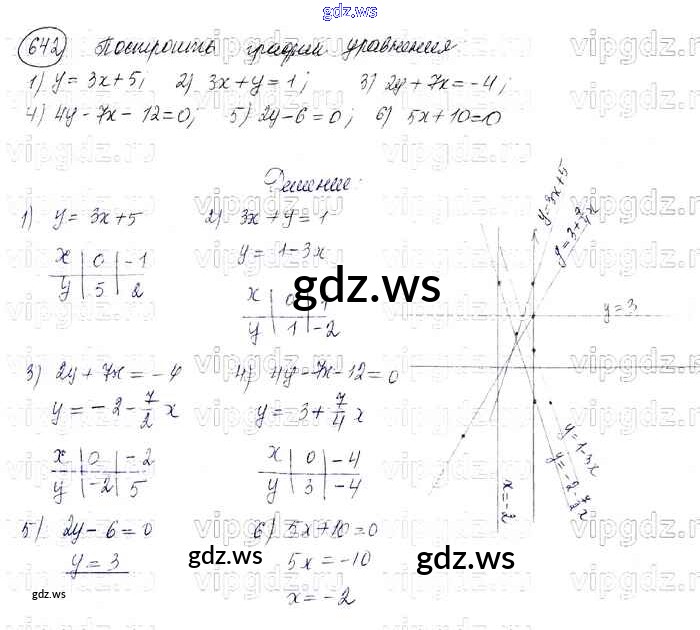 gdz.ws
642) Построить график уравнения
1) y = 3x+5; 2) 3x+y=1; 3) 2y+7x=-4;
4) 4y-7x-12=0; 5) 2y-6=0; 6) 5x+10=0
Решение:
1) y = 3x+5 2) 3x+y=1
y=1-3x
x | 0 | -1
y | 5 | 2
x | 0 | 1
y | 1 | -2
gdz.ws
3) 2y+7x=-4 4) 4y-7x-12=0
y=-2-7/2 x y=3+7/4 x
x | 0 | -2
y | -2 | 5
x | 0 | -4
y | 3 | -4
5) 2y-6=0 6) 5x+10=0
y=3 5x=-10
x=-2
gdz.ws
gdz.ws
gdz.ws
y=3x+5
y=3+7/4x
y=3
y=1-3x
y=-2-7/2x
x=-2
vipgdz.ru